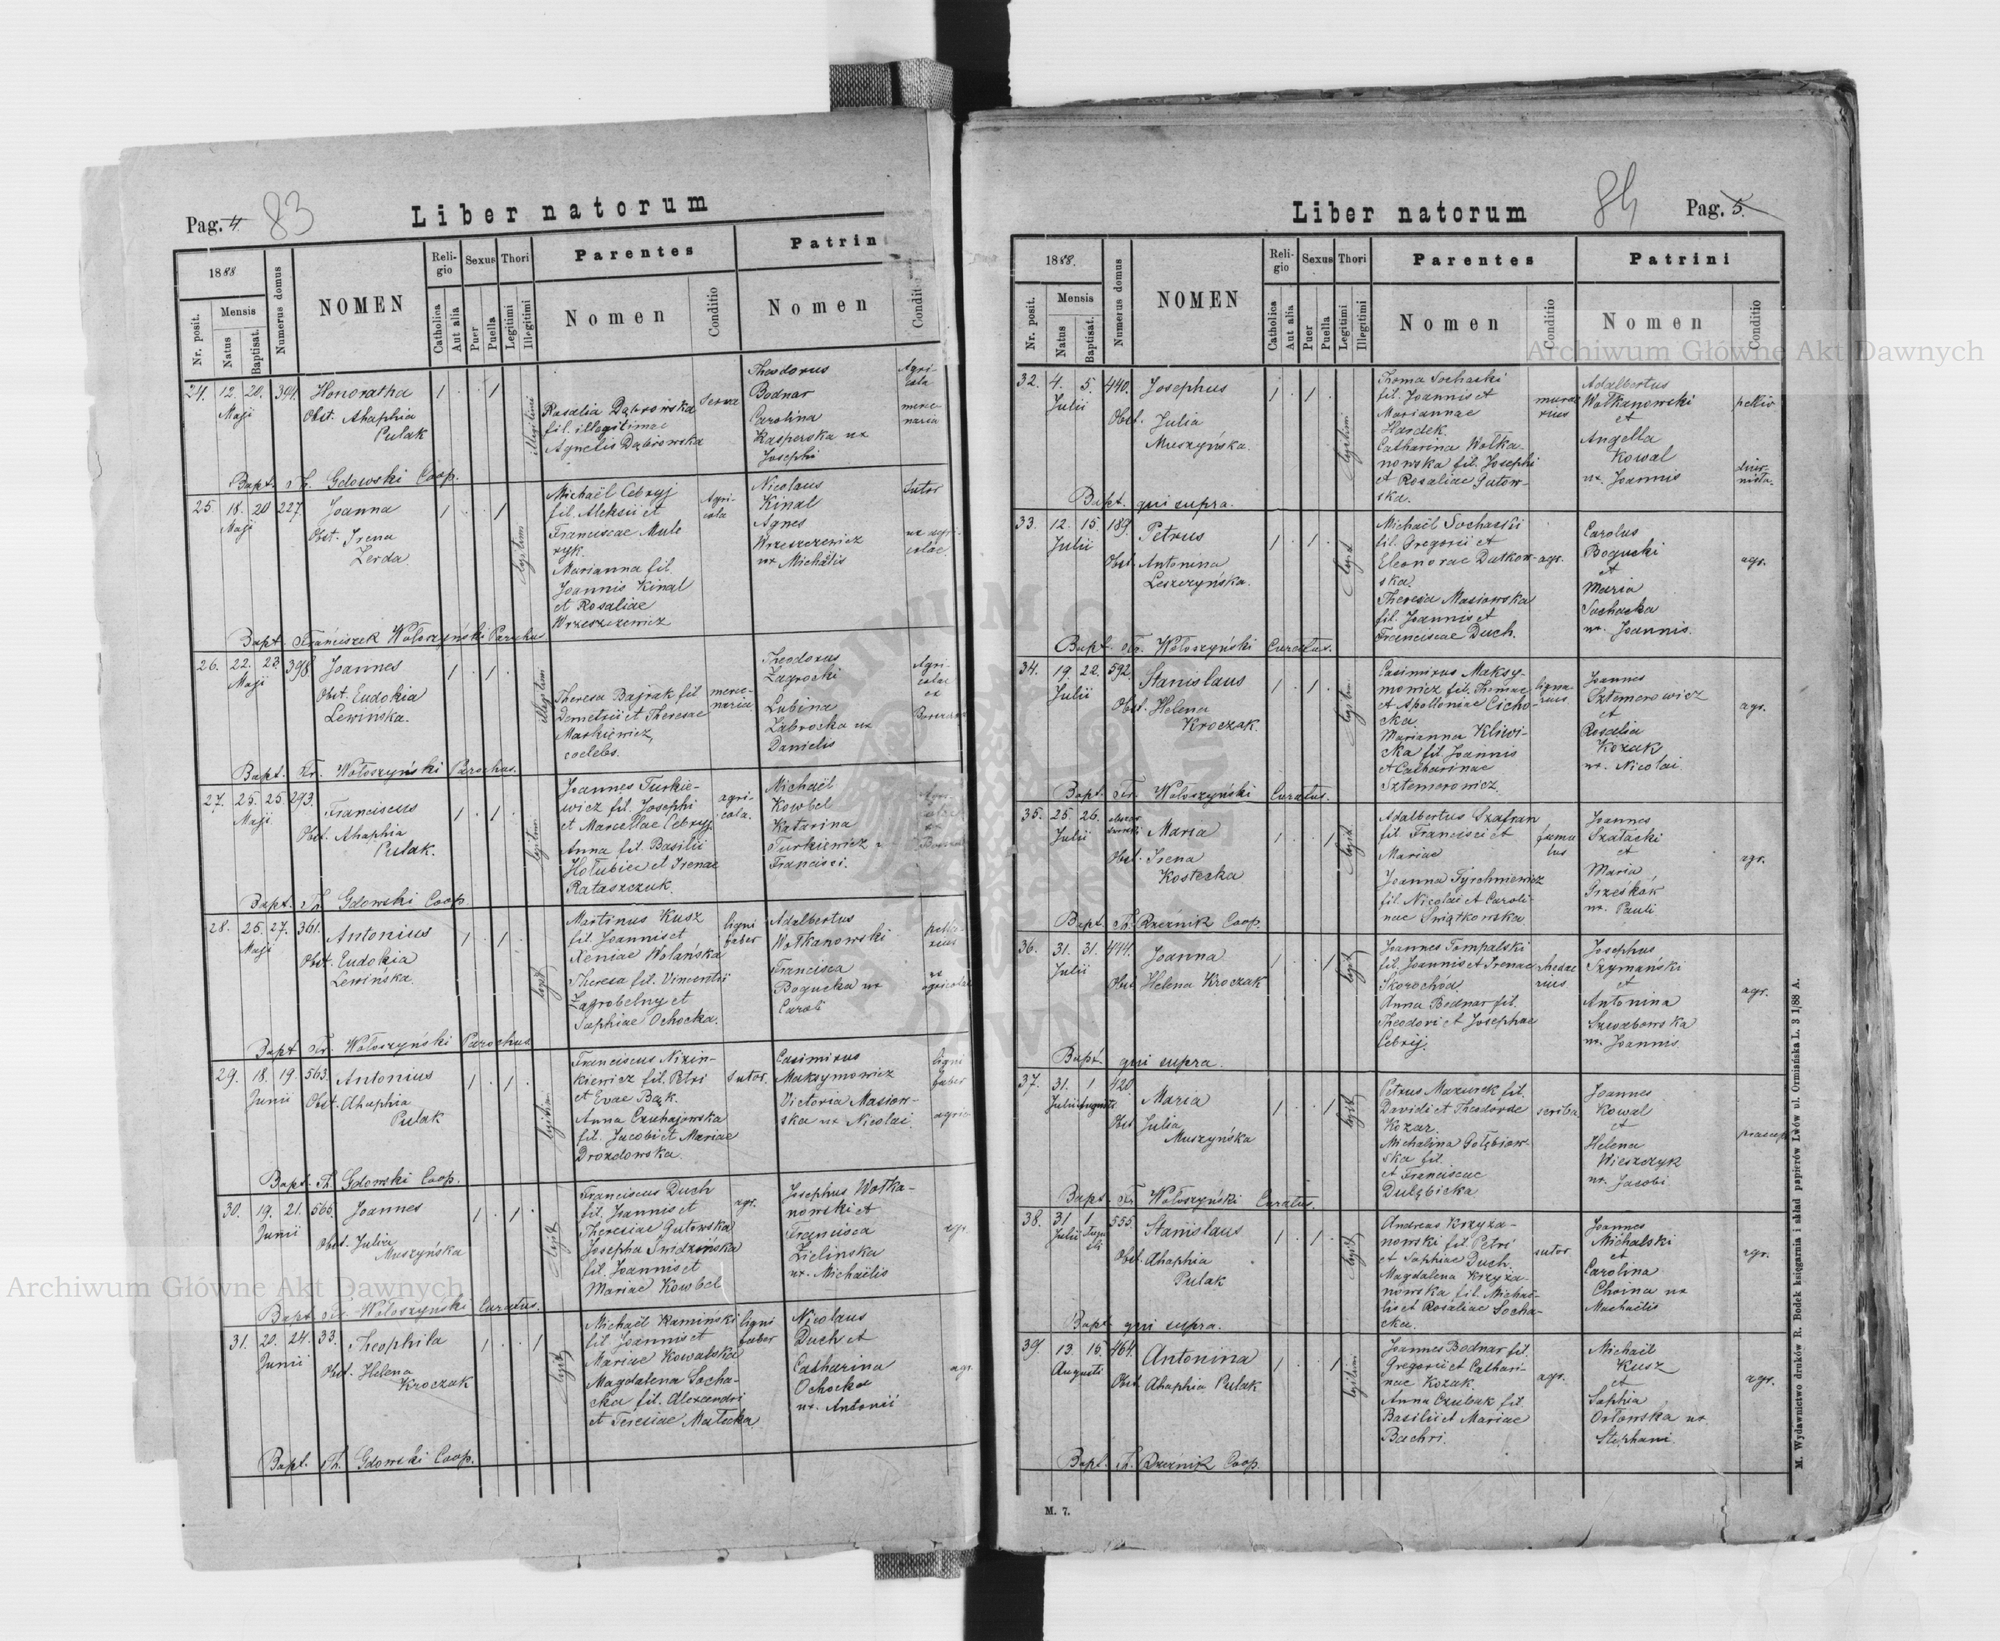 Pag. 4. 83
Liber natorum
1888
Nr. posit.
Mensis
Natus
Baptisat.
Numerus domus
NOMEN
Reli-
gio
Catholica
Aut alia
Sexus
Puer
Puella
Thori
Legitimi
Illegitimi
Parentes
Nomen
Conditio
Patrin
Nomen
Conditio
24. 12. 20. 394. Honoratha 1 . . 1
Maji
Obst. Ahaphia
Pulak
illegitimi
Rosalia Dąbrowska
fil. illegitimae
Agnetis Dąbrowska
serva
Theodorus
Bodnar
Carolina
Kasperska ux
Josephi
Agri-
cola
merce-
naria
Bapt. Th. Gdowski Coop.
25. 18. 20. 227. Joanna 1 . . 1
Maji
Obst. Irena
Zerda.
legitim
Michaël Cebryj
fil. Aleksii et
Franciscae Mulo
ryk.
Marianna fil.
Joannis Kinal
et Rosaliae
Wrzeszczewicz
Agri-
cola
Nicolaus
Kinal
Agnes
Wrzeszczewicz
ux Michaëlis
sutor
ux agri-
colae
Bapt. Franciszek Wołoszyński Parochus
26. 22. 23. 398. Joannes 1 . 1 .
Maji
Obst. Eudokia
Lewinska.
illegitim
Theresa Bajrak fil
Demetrii et Theresae
Markiewicz,
coelebs.
merce-
naria
Theodorus
Zagrocki
Lubina
Zabrocka ux
Danielis
Agri-
colae
Bapt. Fr. Wołoszyński Parochus.
27. 25. 25. 293. Franciscus 1 . 1 .
Maji
Obst. Ahaphia
Pulak.
legitim
Joannes Turkie-
wicz fil. Josephi
et Marcellae Cebryj
Anna fil. Basilii
Hołubiec et Irenae
Rataszczuk.
agri-
cola.
Michaël
Kowbel
Katarina
Turkiewicz
Francisci.
Bapt. Th. Gdowski Coop
28. 25. 27. 361. Antonius 1 . 1 .
Maji
Obst. Eudokia
Lewińska.
legit
Martinus Kusz
fil. Joannis et
Xeniae Wolańska
Theresa fil. Vincentii
Zagrobelny et
Sophiae Ochocka.
ligni
faber
Adalbertus
Wołkanowski
Francisca
Bogucka ux
Caroli
ux
agricolae
Bapt Fr. Wołoszyński Parochus
29. 18. 19. 563. Antonius 1 . 1 .
Junii
Obst. Ahaphia
Pulak
legitim
Franciscus Nizin-
kiewicz fil. Petri
et Evae Bąk.
Anna Czuhajowska
fil. Jacobi et Mariae
Drozdowska.
sutor.
Casimirus
Maksymowicz
Victoria Masiow-
ska ux Nicolai.
ligni
faber
agric
Bapt. Th. Gdowski Coop.
30. 19. 21. 566. Joannes 1 . 1 .
Junii
Obst. Julia
Muszyńska
legit
Franciscus Duch
fil. Joannis et
Theresiae Gutowska
Josepha Świdzińska
fil. Joannis et
Mariae Kowbel
agr.
Josephus Wołka-
nowski et
Francisca
Zielinska
ux. Michaëlis
agr.
Bapt. Fr. Wołoszyński Curatus.
31. 20. 24. 33. Theophila 1 . . 1
Junii
Obst. Helena
Kroczak
legit
Michaël Kamiński
fil. Joannis et
Mariae Kowalska
Magdalena Socha-
cka fil. Alexandri
et Teresiae Małecka.
ligni
faber
Nicolaus
Duch et
Catharina
Ochocka
ux. Antonii
agr.
Bapt. Th. Gdowski Coop.
Liber natorum
84 Pag. 5.
1888.
Nr. posit.
Mensis
Natus
Baptisat.
Numerus domus
NOMEN
Reli-
gio
Catholica
Aut alia
Sexus
Puer
Puella
Thori
Legitimi
Illegitimi
Parentes
Nomen
Conditio
Patrini
Nomen
Conditio
32. 4. 5. 440. Josephus 1 . 1 .
Julii
Obst. Julia
Muszyńska.
legitim
Thoma Sochacki
fil. Joannis et
Mariannae
Hardek.
Catharina Wołka-
nowska fil. Josephi
et Rosaliae Gutow-
ska.
mura
rius
Adalbertus
Wołkanowski
et
Angella
Kowal
ux. Joannis
pellio
diur-
nista.
Bapt. qui supra.
33. 12. 15. 189. Petrus 1 . 1 .
Julii
Obst. Antonina
Leszczyńska.
legit
Michaël Sochacki
fil. Gregorii et
Eleonorae Dutkow-
ska.
Theresa Masiowska
fil. Joannis et
Franciscae Duch.
agr.
Carolus
Bogucki
et
Maria
Sochacka
ux. Joannis.
agr.
Bapt. Fr. Wołoszyński Curatus.
34. 19. 22. 592. Stanislaus 1 . 1 .
Julii
Obst. Helena
Kroczak.
legitim
Casimirus Maksy-
mowicz fil. Thomae
et Apolloniae Cicho-
cka.
Marianna Kliwi-
cka fil. Joannis
et Catharinae
Sztemerowicz.
ligna-
rius
Joannes
Sztemerowicz
et
Rosalia
Kozak
ux. Nicolai.
agr.
Bapt. Fr. Wołoszyński Curatus.
35. 25. 26. Maria 1 . . 1
Julii
Obst. Irena
Kostecka
legit
Adalbertus Szafran
fil. Francisci et
Mariae
Joanna Tyrchniewicz
fil. Nicolai et Caroli-
nae Świątkowska
famu
lus
Joannes
Szatacki
et
Maria
Trześkák
ux. Pauli
agr.
Bapt. Th. Drzeźnik Coop.
36. 31. 31. 444. Joanna 1 . . 1
Julii
Obst. Helena Kroczak
legit
Joannes Tompalski
fil. Joannis et Irenae
Skorochóda.
Anna Bodnar fil.
Theodori et Josephae
Cebrij.
rhedar
rius.
Josephus
Szymański
et
Antonina
Szwabowska
ux. Joannis.
agr.
Bapt. qui supra.
37. 31. 1 420. Maria 1 . . 1
Julii Augusti
Obst. Julia
Muszyńska
legit
Petrus Mazurek fil.
Davidi et Theodorae
Kozar.
Michalina Gołębiow-
ska fil.
et Franciscae
Dulębicka
scriba
Joannes
Kowal
et
Helena
Wieszczyk
ux. Jacobi
Bapt. Fr. Wołoszyński Curatus.
38. 31. 1. 555. Stanislaus 1 . 1 .
Julii Augu
sti
Obst. Ahaphia
Pulak
legit
Andreas Krzyża-
nowski fil. Petri
et Sophiae Duch.
Magdalena Krzyża-
nowska fil. Michaë-
lis et Rosaliae Socha-
cka.
sutor
Joannes
Michalski
et
Carolina
Choina ux
Michaëlis
agr.
Bapt. qui supra.
39. 13. 15. 464. Antonina 1 . . 1
Augusti
Obst. Ahaphia Pulak
legitimi
Joannes Bodnar fil.
Gregorii et Cathari-
nae Kozak.
Anna Czubak fil.
Basilii et Mariae
Bachri.
agr.
Michaël
Kusz
et
Sophia
Orłowska ux.
Stephani.
agr.
Bapt. Th. Drzeźnik Coop.
M. 7.
M. Wydawnictwo druków R. Bodek księgarnia i skład papierów Lwów ul. Ormiańska L. 3 1/88 A.
Archiwum Główne Akt Dawnych
Archiwum Główne Akt Dawnych